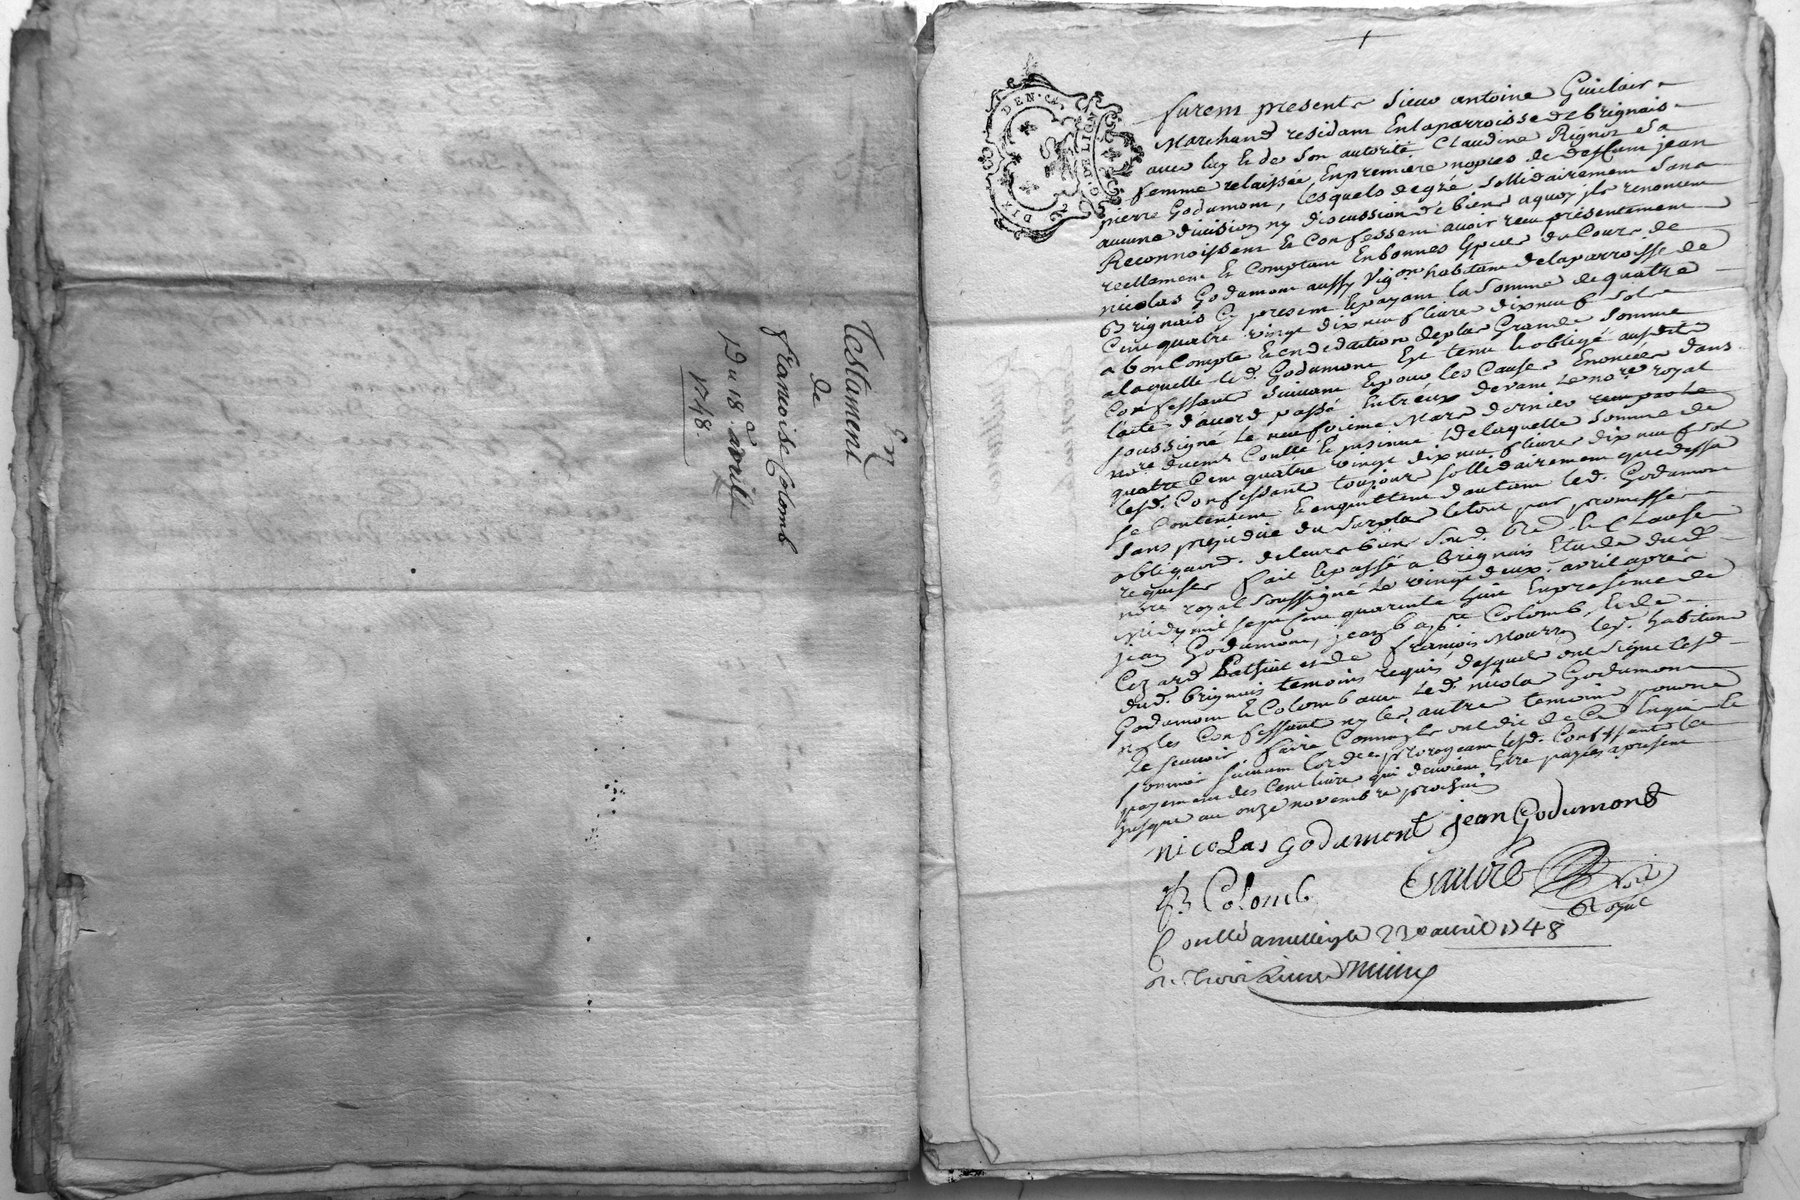 En
Testament
de
francoise Colomb
Du 18.e avril
1748.
DIX DEN. G. DE LION
furent presents Sieur antoine Guiclair
Marchand residant En la parroisse de brignais
avec luy et de Son autorité Claudine Rignoz sa
femme relaissée En premiere nopces de deffunt jean
pierre Godamont, lesquels de gré Sollidairement Sans
aucune division ny discussion de biens a quoy jls renoncent
Reconnoissent et Confessent avoir receu présentement
reellement et Comptant En bonnes Especes du Cours de
nicolas Godamont aussy Vigon habitant de la parroisse de
Brignais Cy present Et payant la Somme de quatre
Cent quatre vingt dix neuf livres dix neuf Sols
a bon Compte et en déduction de plus Grande Somme
a laquelle led. Godamont Est tenu et obligé ausdits
Confessants Suivant Et pour les Causes Enoncées dans
l'acte d'acord passé Entr'eux devant le no.re royal
soussigné le neufvieme Mars dernier
no.re duement Coullé Et jnsinué de laquelle Somme de
quatre Cent quatre vingt dix neuf livres dix neuf Sol
lesd. Confessants toujours Sollidairement que dessus
Se Contentent Et enquittent d'autant led. Godamont
Sans prejudice du Surplus le tout par promesse
obliga.on de leurs biens Soub. Re.on et Clauses
requises fait Et passé a Brignais Etude dud.
no.re royal Soussigné Le vingt deux avril après
Midy mil sept Cent quarante huit En presence de
jean Godamont, jean bap.te Colomb, Et de
Cezard et de francois Mourron lesd. habitans
dud. Brignais temoins requis desquels ont Signé lesd
Godamont et Colomb avec led. nicolas Godamont
ny les Confessants ny les autres temoins pour ne
le Scavoir faire Comm'jls ont dit de Ce Enquis et
Sommés Suivant l'ordce prorogeant lesd. Confessants le
payement des Cent livres qui devoient Estre payées apresent
jusque au onze novembre prochain
nicolas godamont jean Godumont
jB Colomb favre no.re Royal
Coullé a millery le 23e avril 1748
Rx trois Livres